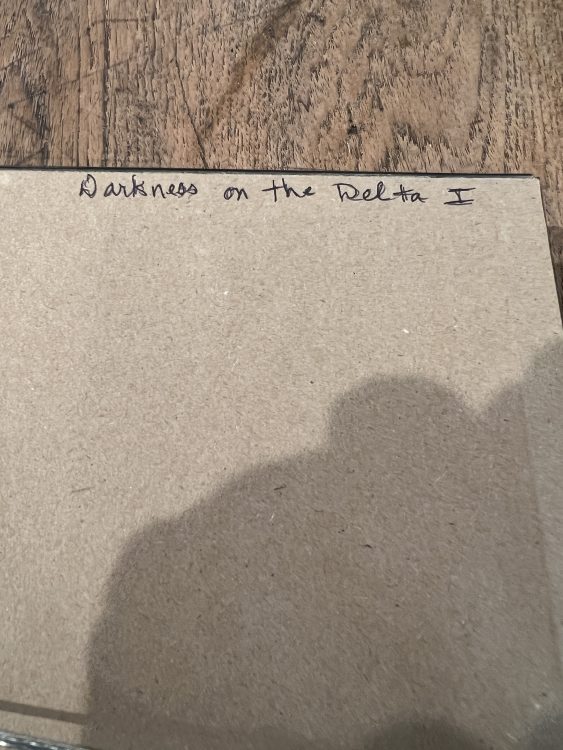 Darkness on the Delta I